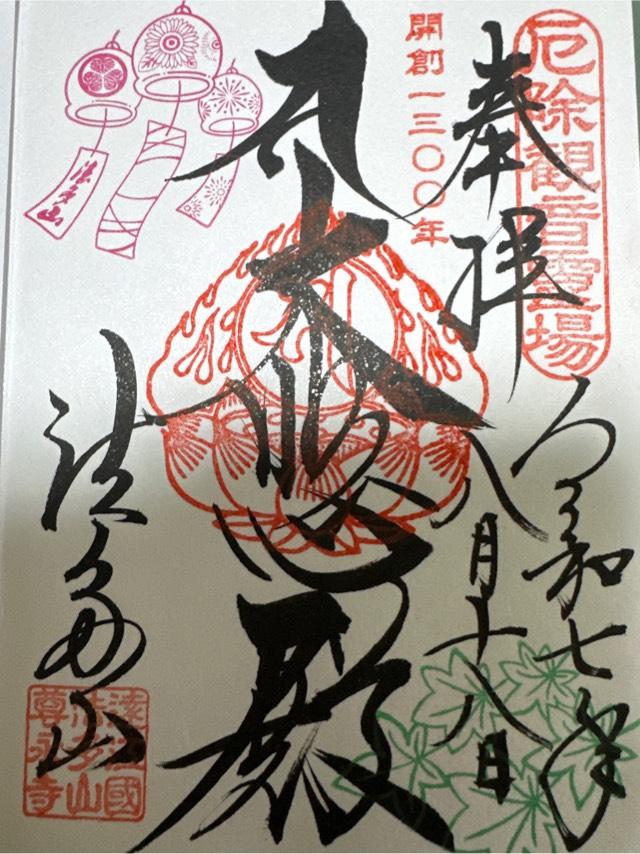 厄除観音霊場
奉拝
令和七年
八月十八日
開創一三〇〇年
大悲殿
法多山
法多山
遠江國
法多山
尊永寺